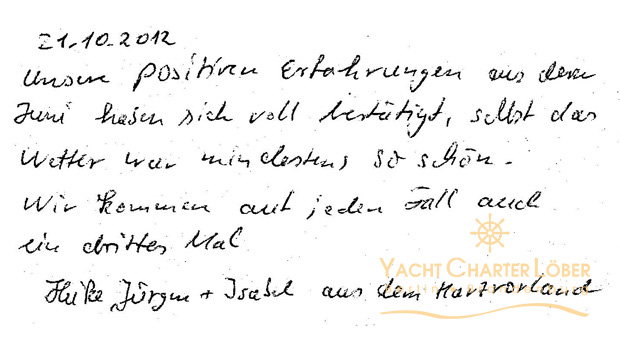 21.10.2012
Unsere positiven Erfahrungen aus dem
Juni haben sich voll bestätigt, selbst das
Wetter war mindestens so schön.
Wir kommen auf jeden Fall auch
ein drittes Mal
YACHT CHARTER LÖBER
Heike, Jürgen + Isabel aus dem Harzvorland